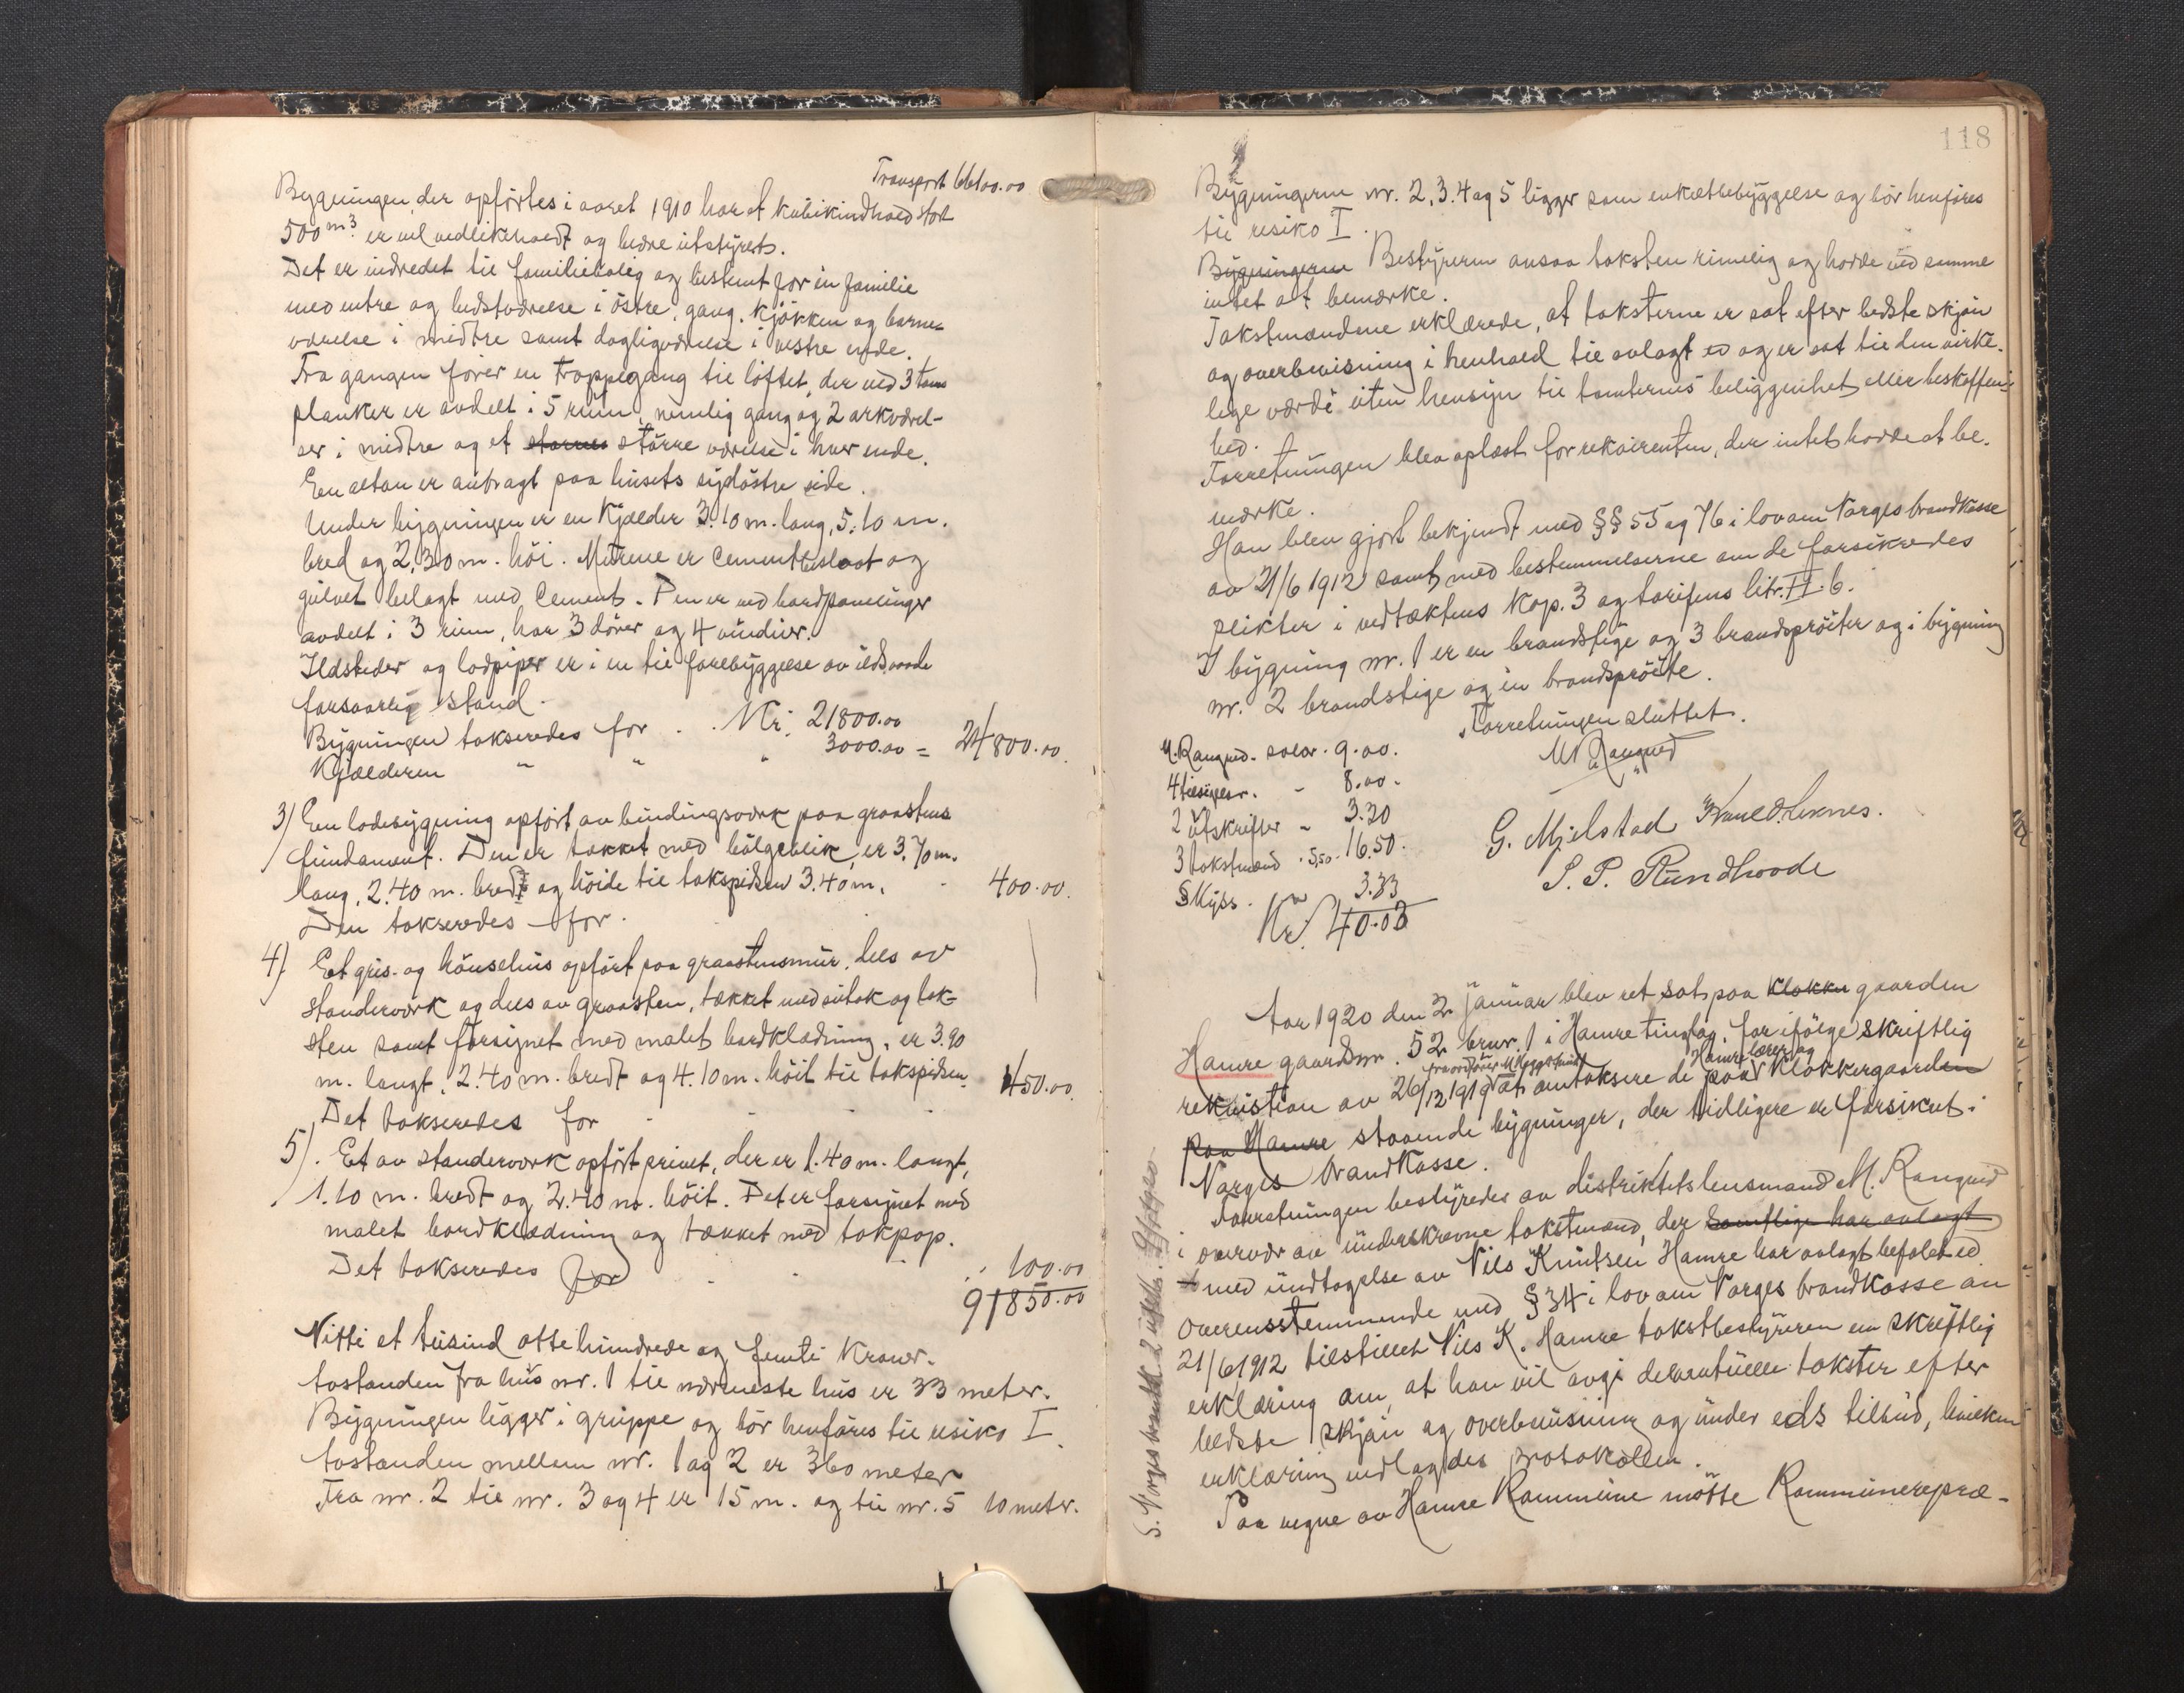 Transport 66100.00
Bygningen der opførtes i aaret 1910 har et kubikindhold stort
500 m3. er vel vedlikeholdt og bedre utstyret.
Det er indredet til familiebolig og bestemt for en familie
med entre og bedstværelse i østre, gang, kjøkken og barne-
værelse i midtre samt dagligværelse i vestre ende.
Fra gangen fører en trappegang til loftet, der ved 3 tom
planker er avdelt i 5 rum, nemlig gang og 2 arkværel-
ser i midtre og et større værelse i hver ende.
En altan er anbragt paa husets sydøstre side.
Under bygningen er en kjælder 3.10 m. lang, 5.10 m.
bred og 2,30 m. høi. Murene er cementbeslaat og
gulvet belagt med cement. Den er ved bordpanelinger
avdelt i 3 rum, har 3 dører og 4 vinduer.
Ildsteder og lodpiper er i en til forebyggelse av ildsvaade
forsvarlig stand.
Bygningen takseredes for . . Kr. 21800.00
Kjælderen " " " 3000.00 = 24800.00.
3) En ladebygning opført av bindingsverk paa graastens
fundament. Den er tækket med bølgeblik, er 3.70 m.
lang, 2.40 m. bredt og høide til takspidsen 3.40 m.
Den takseredes for . 400.00.
4). Et gris- og hønsehus opført paa graastensmur, dels av
standerverk og dels av graasten, tækket med sutak og tak-
sten samt forsynet med malet bordklædning, er 3.90
m. langt, 2.40 m. bredt og 4.10 m. høit til takspidsen.
Det takseredes for 450.00.
5). Et av standerverk opført privet, der er 1.40 m. langt,
1.10 m. bredt og 2.40 m. høit. Det er forsynet med
malet bordklædning og tækket med takpap.
Det takseredes for 100.00
91850.00
Nitti et tusind otte hundrede og femti kroner.
Avstanden fra hus nr. 1 til nærmeste hus er 33 meter.
Bygningen ligger i gruppe og bør henføres til risiko I.
Avstanden mellem nr. 1 og 2 er 360 meter
Fra nr. 2 til nr. 3 og 4 er 15 m. og til nr. 5 10 meter.
118
Bygningerne nr. 2, 3. 4 og 5 ligger som enkeltbebyggelse og bør henføres
til risiko I.
Bygningerne Bestyreren ansaa taksten rimelig og hadde ved samme
intet at bemerke.
Takstmændene erklærede, at taksterne er sat efter bedste skjøn
og overbevisning i henhold til avlagt ed og er sat til den virke-
lige værdi uten hensyn til tomternes beliggenhet eller beskaffen-
hed.
Forretningen blev oplæst for rekvirenten, der intet hadde at be-
merke.
Han blev gjort bekjendt med §§ 55 og 76 i lov om Norges brandkasse
av 21/6 1912 samt med bestemmelserne om de forsikredes
plikter i vedtæktens kap. 3 og tarifens litr. II b.
I bygning nr. 1 er en brandstige og 3 brandsprøiter og i bygning
nr. 2 brandstige og en brandsprøite.
Forretningen sluttet.
M. Rangved. salær. 9.00.
M Rangved
4 tilsigelser. - 8.00.
2 utskrifter " 3.20
3 takstmænd . 5.50. 16.50.
G. Mjelstad
S. P. Rundhovde
Skyss. " 3.33
Kr. 40.03
Aar 1920 den 2 januar blev ret sat paa klokker gaarden
Hamre gaardsnr. 52 brnr. 1 i Hamre tinglag, for ifølge skriftlig
rekvisition av 26/12 1919 at omtaksere de paa Hamre lærer og klokkergaarden
paa Hamre staaende bygninger, der tidligere er forsikret i
Norges brandkasse.
Forretningen bestyredes av distriktets lensmand M. Rangved
i overvær av underskrevne takstmænd, der samtlige har avlagt
med undtagelse av Nils Knutsen Hamre har avlagt befalet ed.
Overensstemmende med § 34 i lov om Norges brandkasse av
21/6 1912 tilstillet Nils K. Hamre takstbestyreren en skriftlig
erklæring om, at han vil avgi de eventuelle takster efter
bedste skjøn og overbevisning og under eds tilbud, hvilken
erklæring vedlagdes protokollen.
Paa vegne av Hamre kommune møtte kommunerepræ-